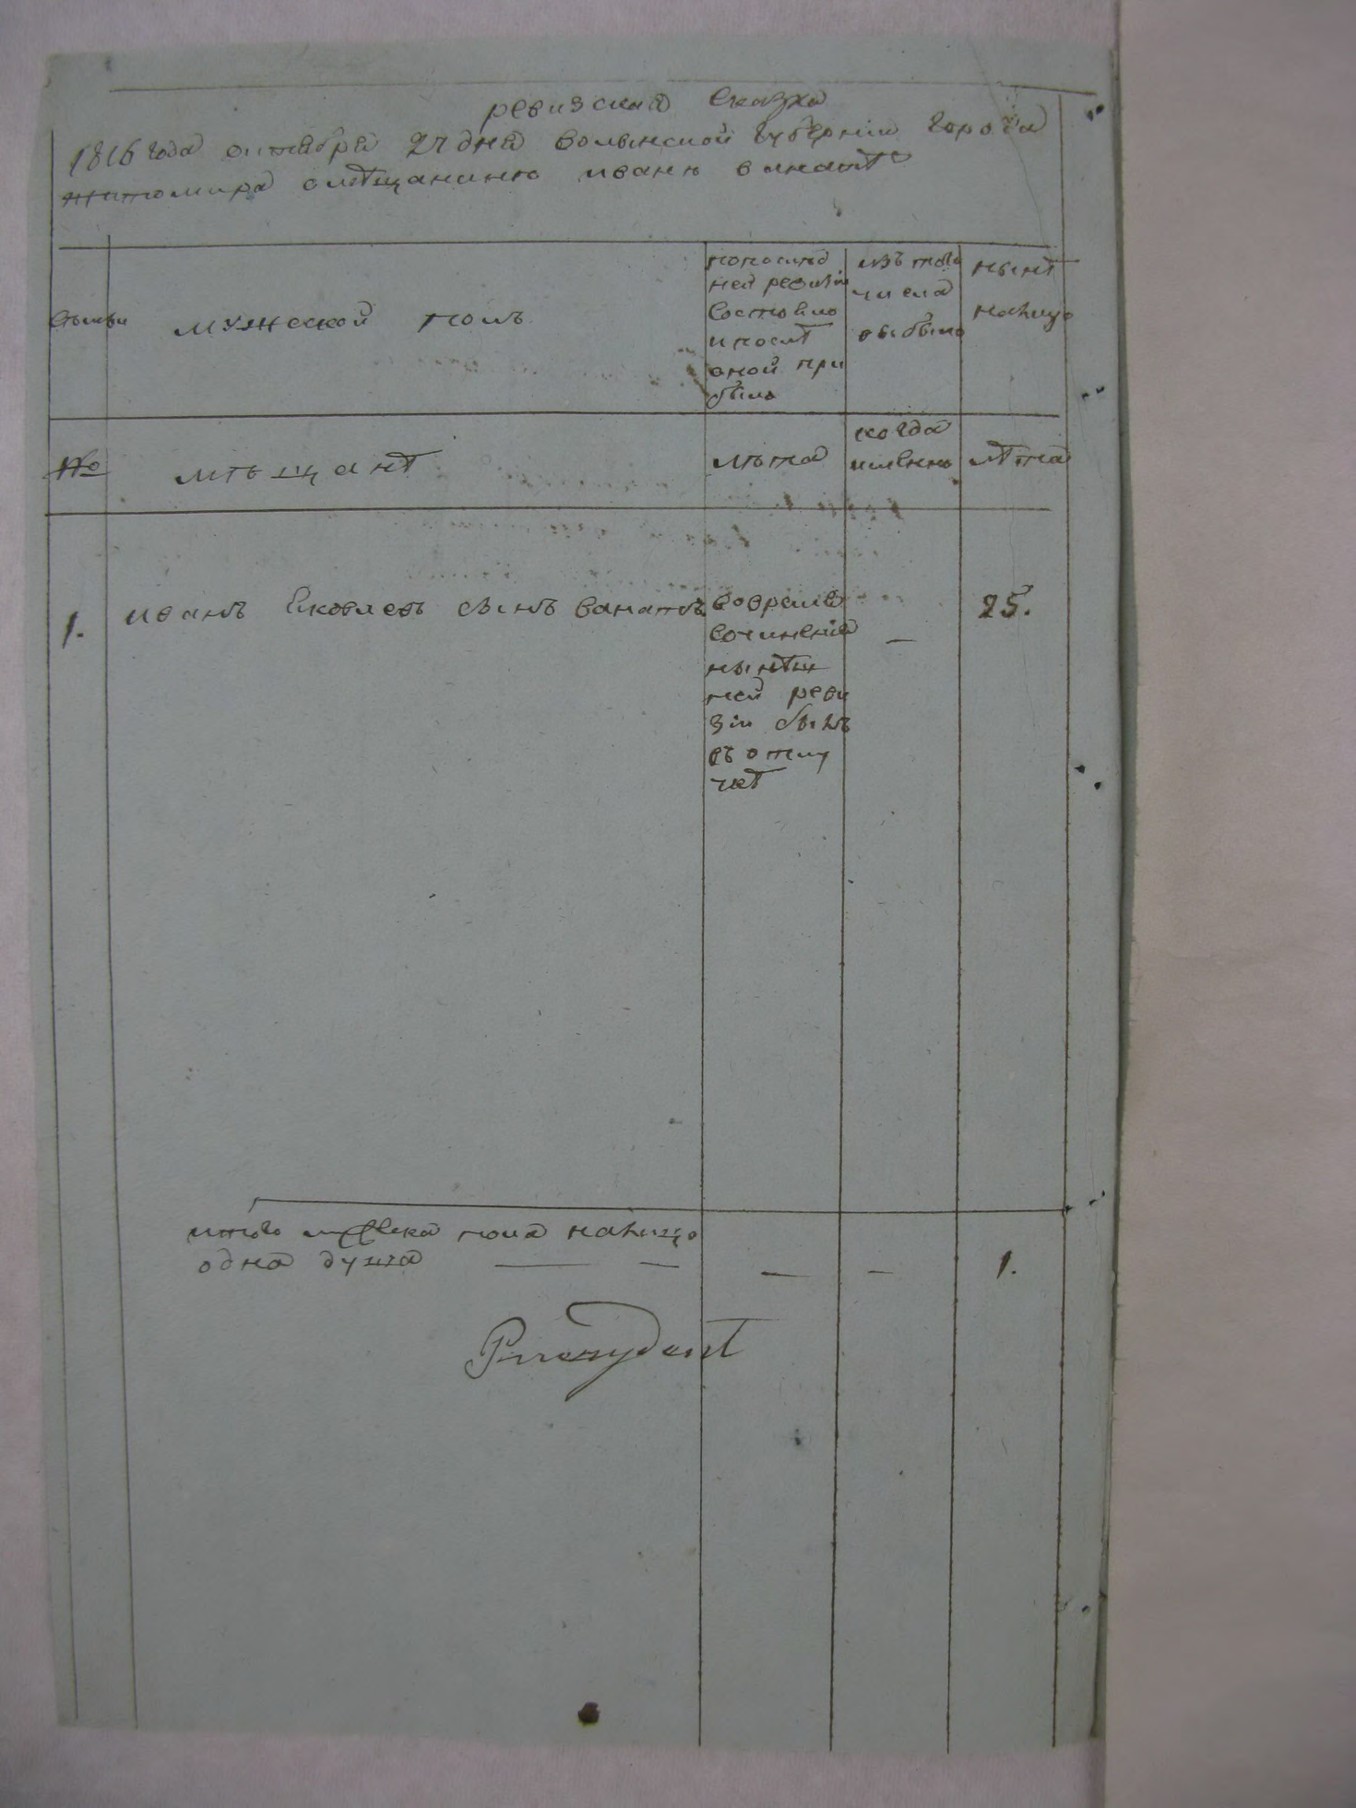 ревизская сказка
1816 года октября 27 дня волынской губернии города
житомира омѣщанинѣ иванѣ
семьи
мужеской полъ
попослѣд
ней ревизіи
состояло
ипослѣ
оной при
было
изъ того
числа
выбыло
нынѣ
налицо
№
мѣщанѣ
лѣта
когда
имянно
лѣта
1.
иванъ Яковлевъ сынъ ванатъ
вовремя
сочиненія
нынѣш
ней реви
зіи былъ
въ отлу
чкѣ
—
25.
итого мужеска пола налицо
одна душа — —
—
—
1.
Prezydent